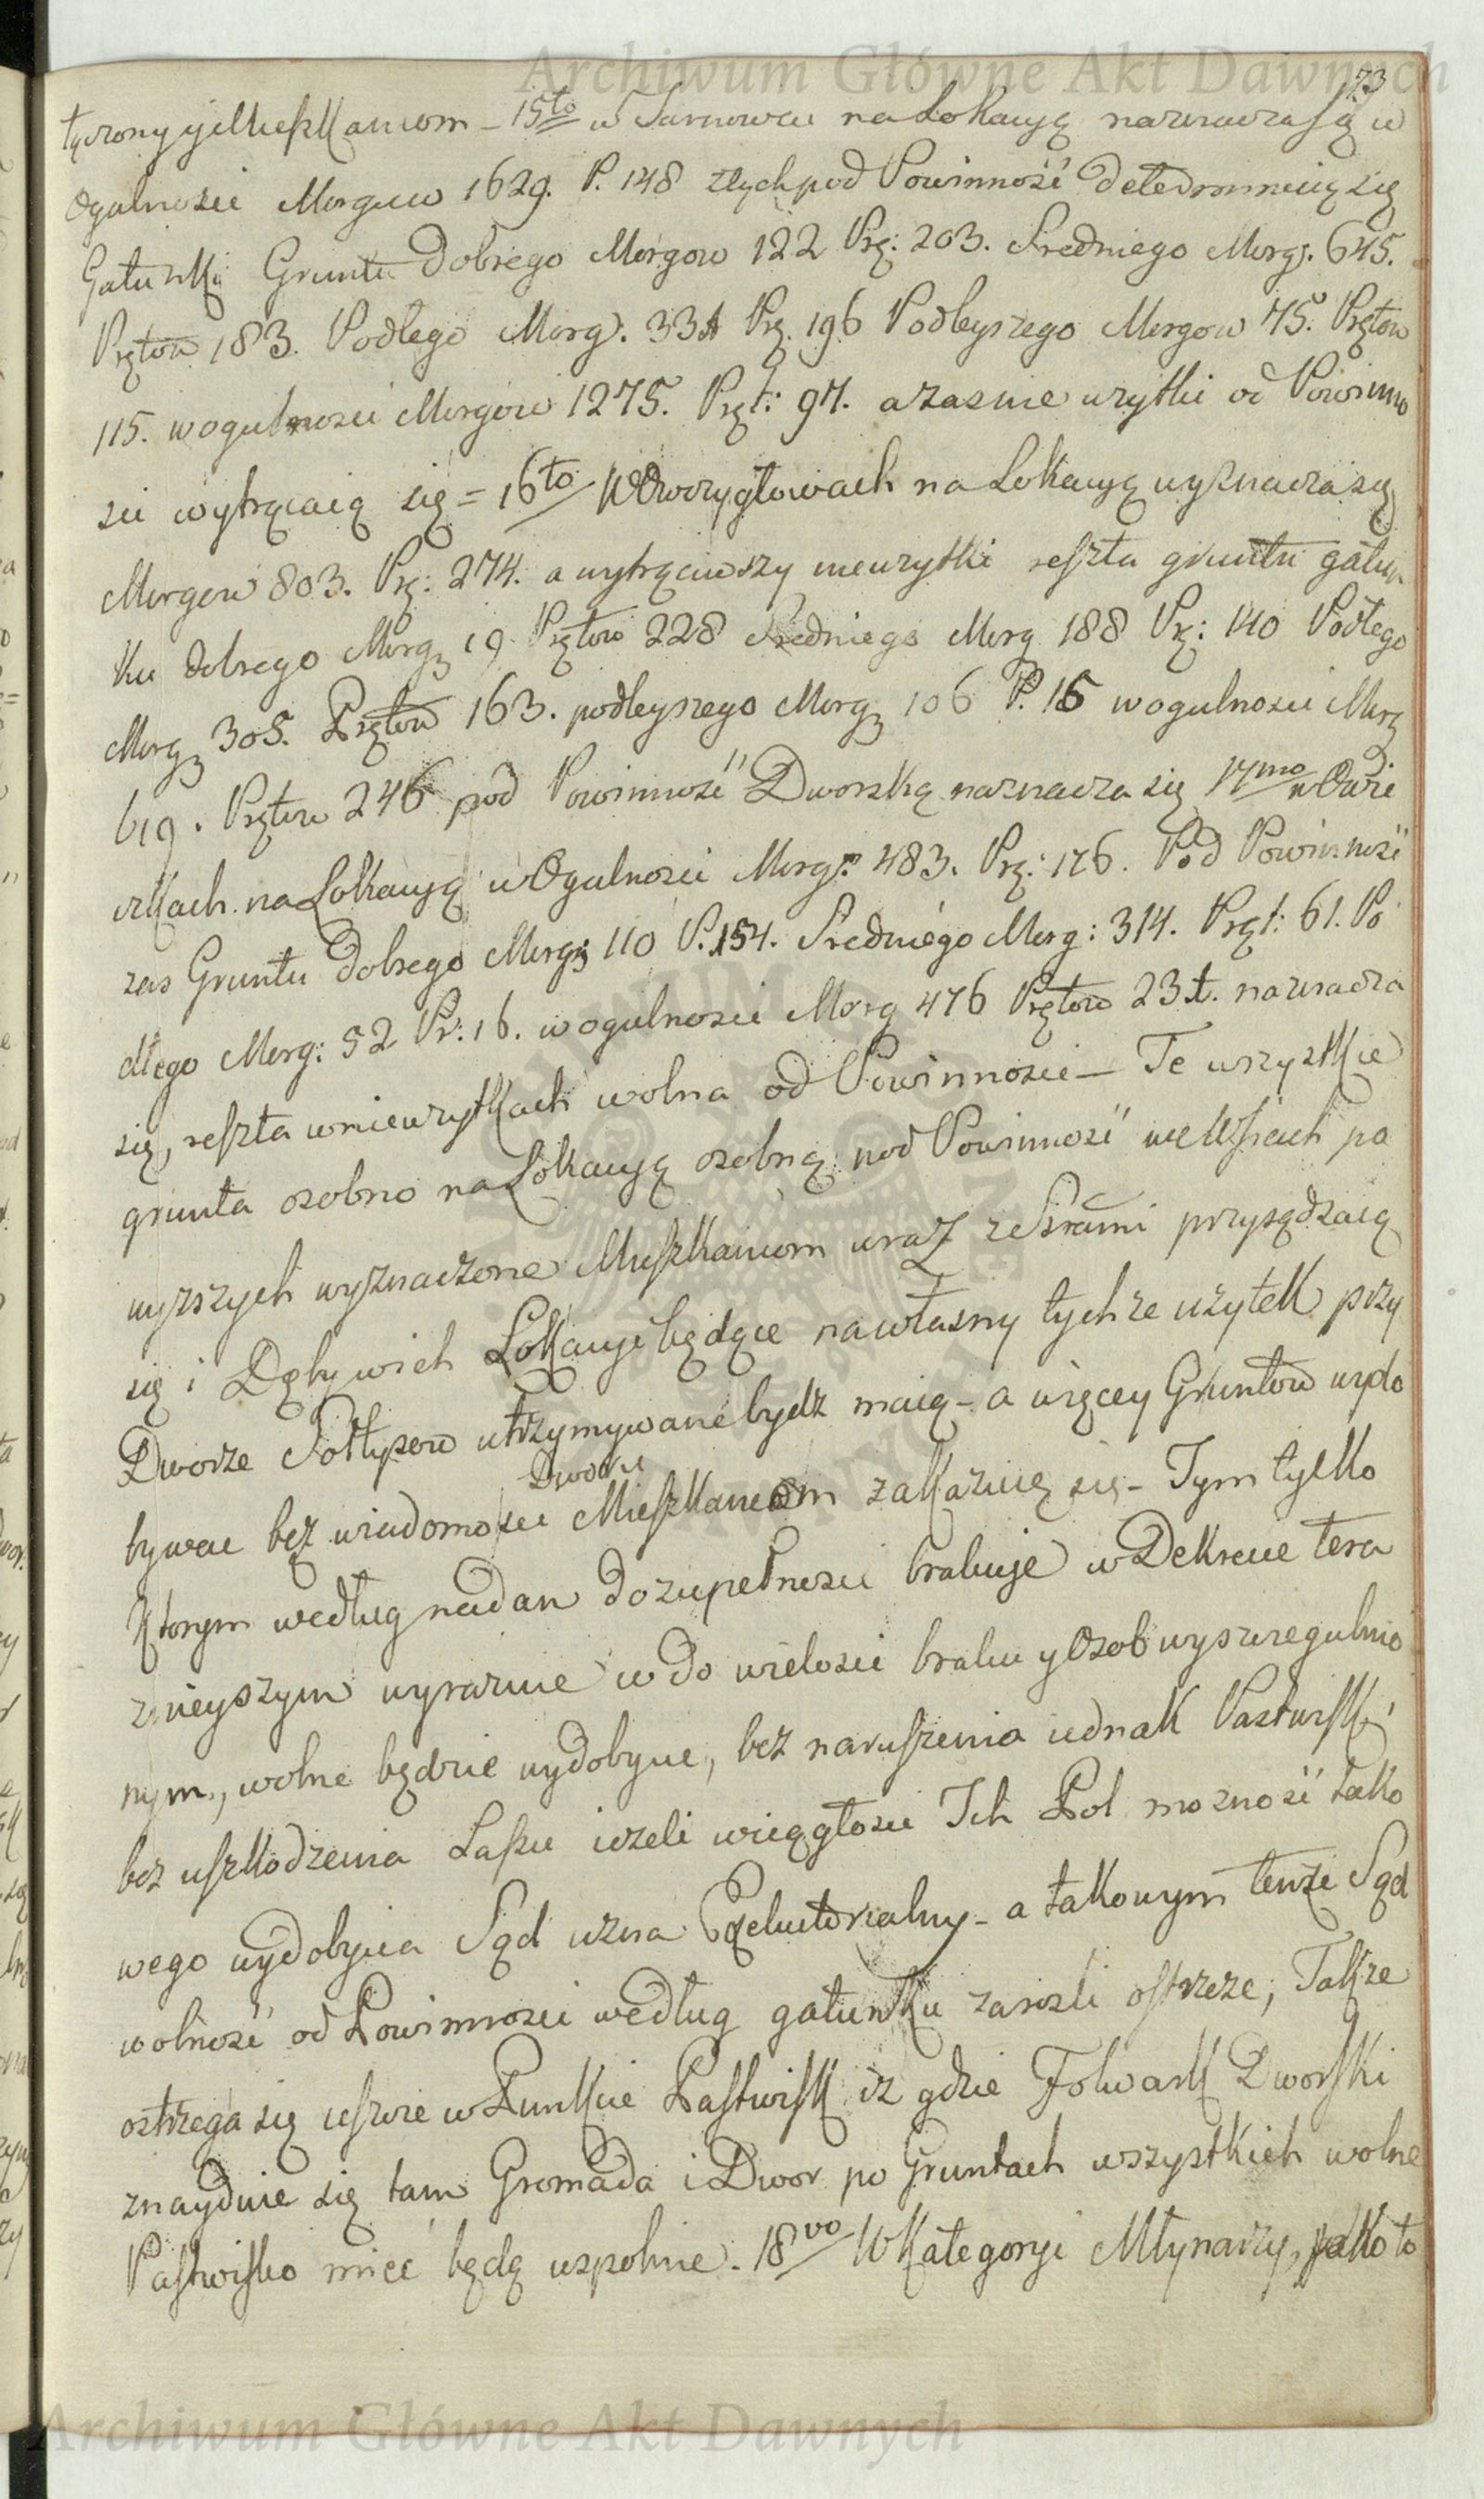 Archiwum Główne Akt Dawnych
73
tyczony ij Mieszkancom – 15to w Tarnowcu na Lokacyą naznacza się w
Ogulnosci Morgow 1629. P. 148 z tych pod Powinność determinuią się
Gatunki Gruntu Dobrego Morgow 122 Prę: 203. Sredniego Morg. 645.
Prętow 183. Podłego Morg. 331 Prę. 196 Podleyszego Morgow 75. Prętow
115. w ogulnosci Morgow 1275. Pręt: 97. a zas nie użytki od Powinno
sci wytrącaią się = 16to W Dwczygłowach na Lokacyą wyznacza się
Morgow 803. Prę: 274. a wytrąciwszy nieużytki reszta gruntu gatun
ku dobrego Morg 19 Prętow 228 Sredniego Morg 188 Prę: 140 Podłego
Morg 305. Prętow 163. podleyszego Morg 106 P. 15 w ogulnosci Morg
619. Prętow 246 pod Powinność Dworską naznacza się 17mo w Owie
czkach na Lokacyą w Ogulnosci Morg. 483. Prę: 176. Pod Powinność
zas Gruntu Dobrego Morg 110 P. 154. Sredniego Morg: 314. Pręt: 61. Po
dłego Morg: 52 Pr: 16. w ogulnosci Morg 476 Prętow 231. naznacza
się, reszta w nieużytkach wolna od Powinnosci – Te wszystkie
grunta osobno na Lokacyą osobną pod Powinność we Wsiach po
wyzszych wyznaczone Mieszkancom wraz z Ssrami przysądzaią
się i Dęby w ich Lokacyi będące na własny tychze użytek przy
Dworze Sołtysow utrzymywane bydz maią – a więcey Gruntow wydo
bywac bez wiadomosci Dworu Mieszkancom zakazuię się – Tym tylko
Ktorym według nadan do zupełnosci brakuje w Dekrecie tera
znieyszym wyraznie w do wielosci braku y Osob wyszczegulnio
nym, wolne będzie wydobycie, bez naruszenia iednak Pastwisk,
bez uszkodzenia Lasu iezeli w ciągłosci Ich Pol moznosc tako
wego wydobycia Sąd uzna Exekutorialny – a takowym tenże Sąd
wolność od Powinnosci według gatunku zarosli ostrzeze; Takze
ostrzega się ieszcze w Punkcie Pastwisk iz gdzie Folwark Dworski
znayduie się tam Gromada i Dwor po Gruntach wszystkich wolne
Pastwisko miec będą wspolnie. 18vo W Kategoryi Młynarzy, jako to
Archiwum Główne Akt Dawnych